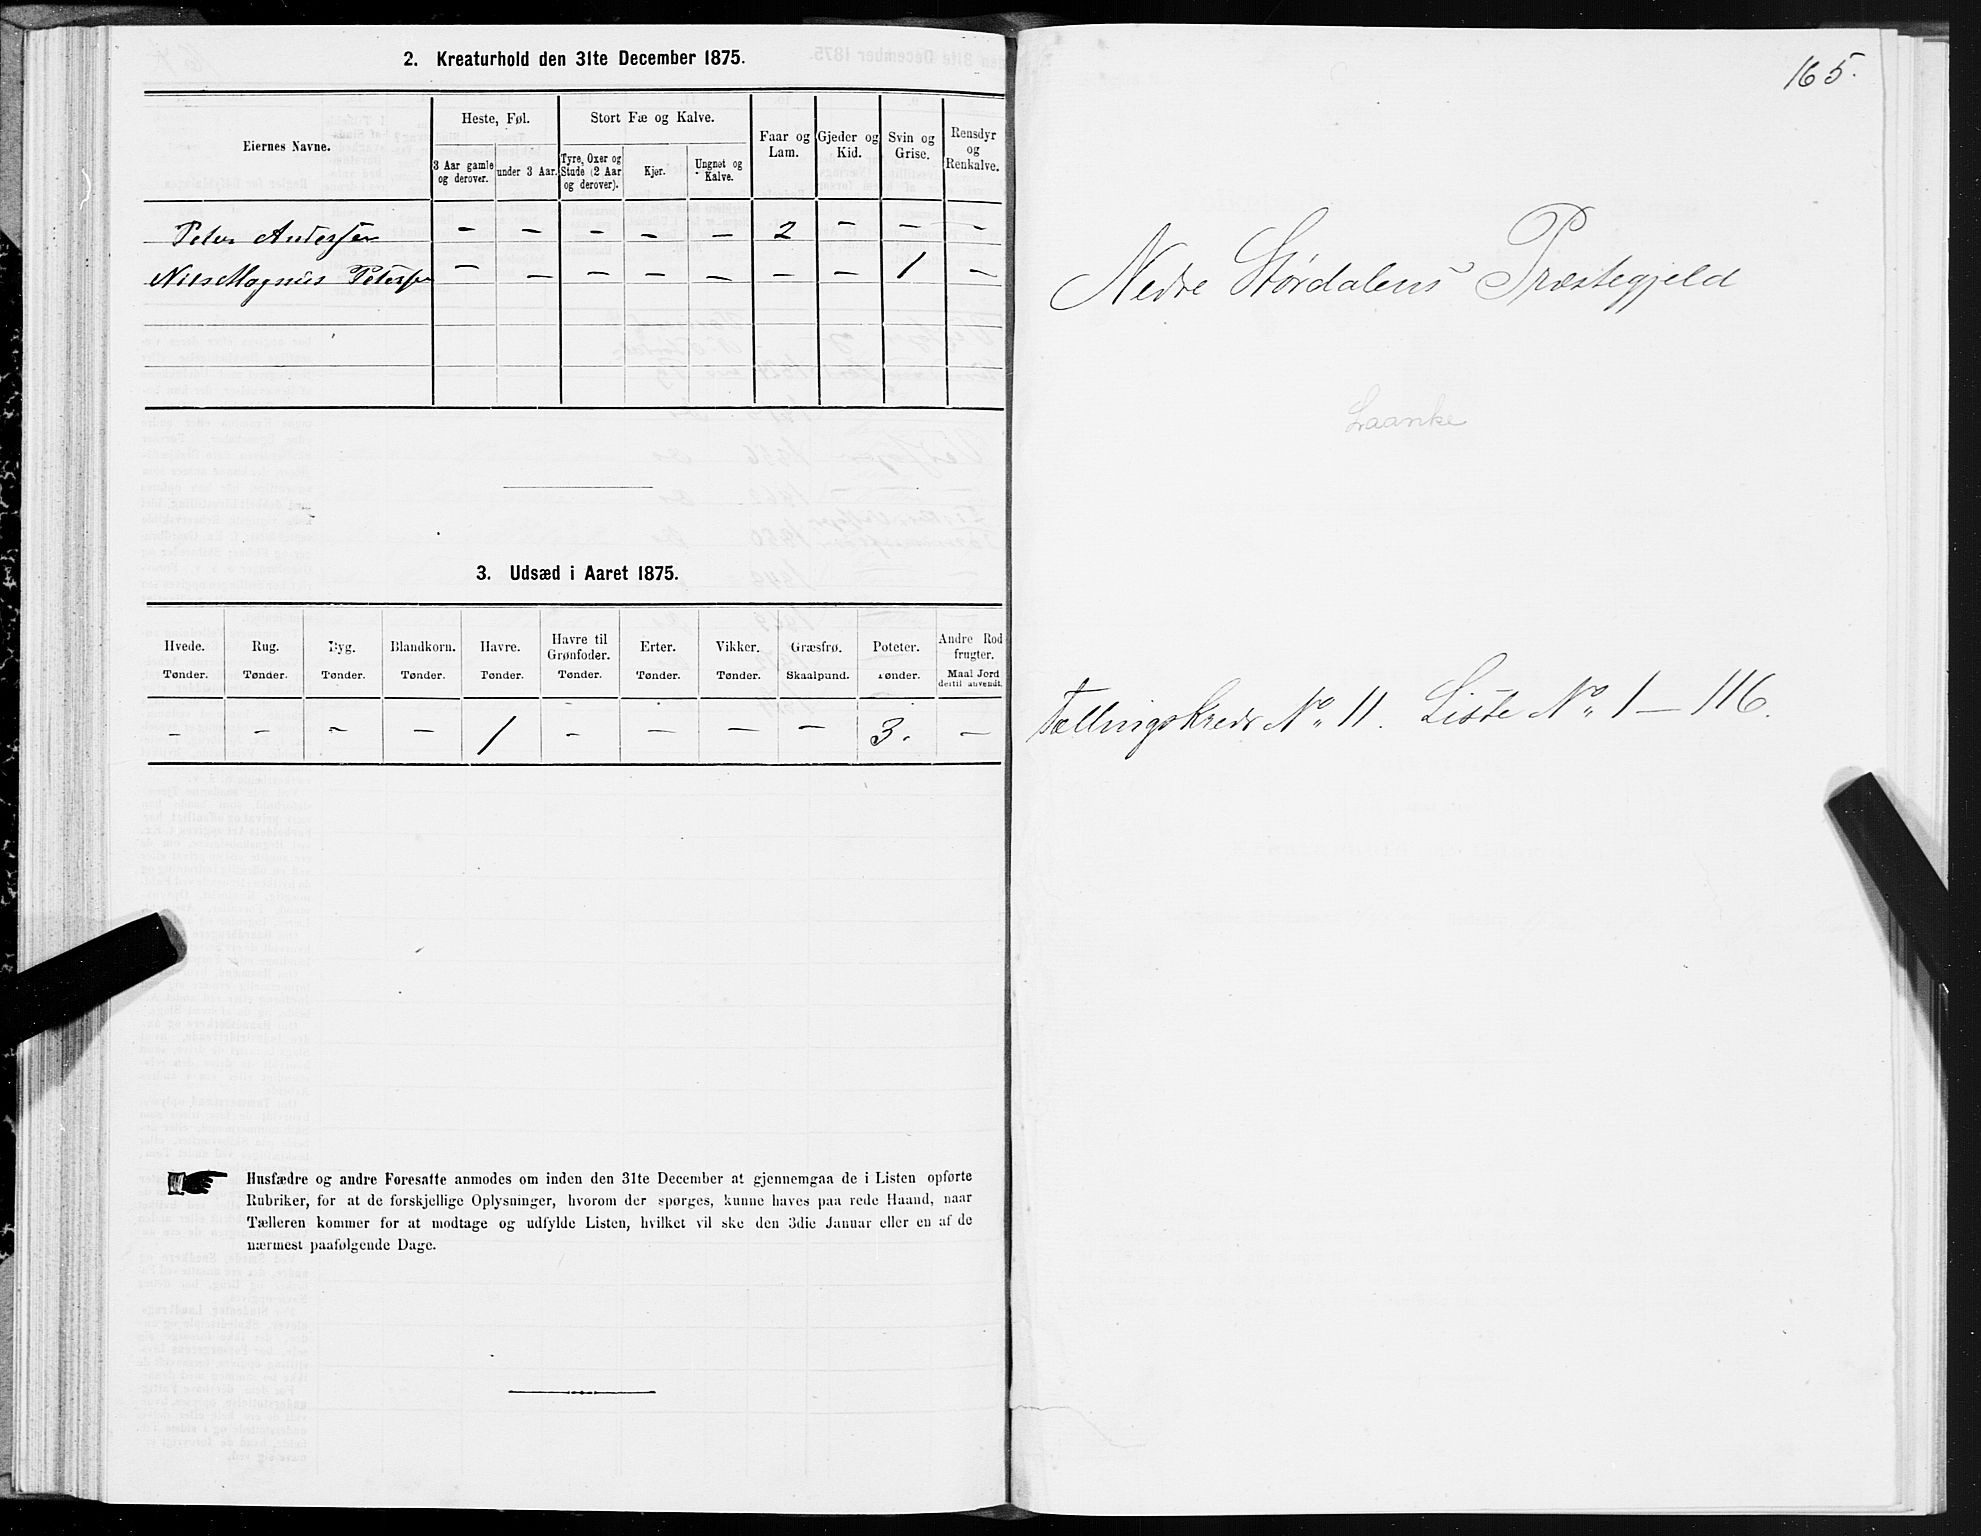 2. Kreaturhold den 31te December 1875.
Eiernes Navne.
Heste, Føl.
Stort Fæ og Kalve.
Faar og
Lam.
Gjeder og
Kid.
Svin og
Grise.
Rensdyr
og
Renkalve.
3 Aar gamle
og derover.
under 3 Aar.
Tyre, Oxer og
Stude (2 Aar
og derover).
Kjør.
Ungnøt og
Kalve.
Peter Andersen - - - - - 2 - - -
Nils Magnus Petersen - - - - - - - 1 -
3. Udsæd i Aaret 1875.
Hvede. Rug. Byg. Blandkorn. Havre. Havre til
Grønfoder. Erter. Vikker. Græsfrø. Poteter. Andre Rod
frugter.
Tønder. Tønder. Tønder. Tønder. Tønder. Tønder. Tønder. Tønder. Skaalpund. Tønder. Maal Jord
dertil anvendt.
- - - - 1 - - - - 3. -
Husfædre og andre Foresatte anmodes om inden den 31te December at gjennemgaa de i Listen opførte
Rubriker, for at de forskjellige Oplysninger, hvorom der spørges, kunne haves paa rede Haand, naar
Tælleren kommer for at modtage og udfylde Listen, hvilket vil ske den 3die Januar eller en af de
nærmest paafølgende Dage.
165.
Nedre Størdalens Præstegjeld
Laanke
Tællingskreds No. 11. Liste No. 1 - 116.